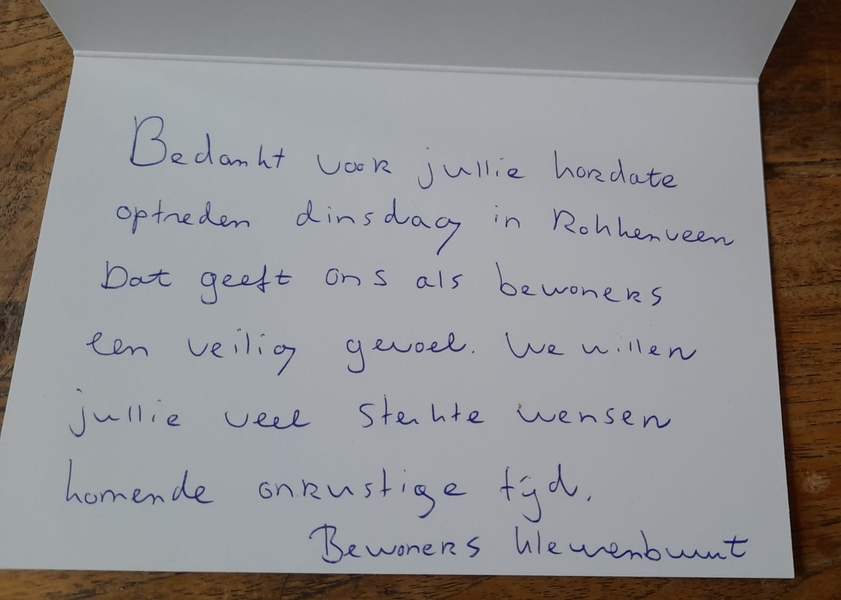 Bedankt voor jullie kordate
optreden dinsdag in Rokkenveen
Dat geeft ons als bewoners
een veilig gevoel. We willen
jullie veel sterkte wensen
komende onrustige tijd.
Bewoners kleurenbuurt